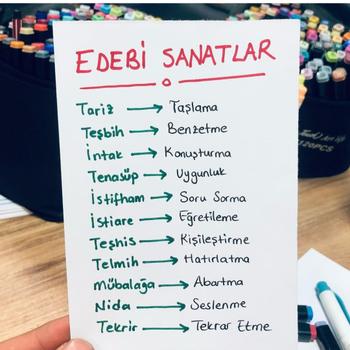 EDEBİ SANATLAR
Tariz → Taşlama
Teşbih → Benzetme
İntak → Konuşturma
Tenasüp → Uygunluk
İstifham → Soru Sorma
İstiare → Eğretileme
Teşhis → Kişileştirme
Telmih → Hatırlatma
Mübalağa → Abartma
Nida → Seslenme
Tekrir → Tekrar Etme
120PCS